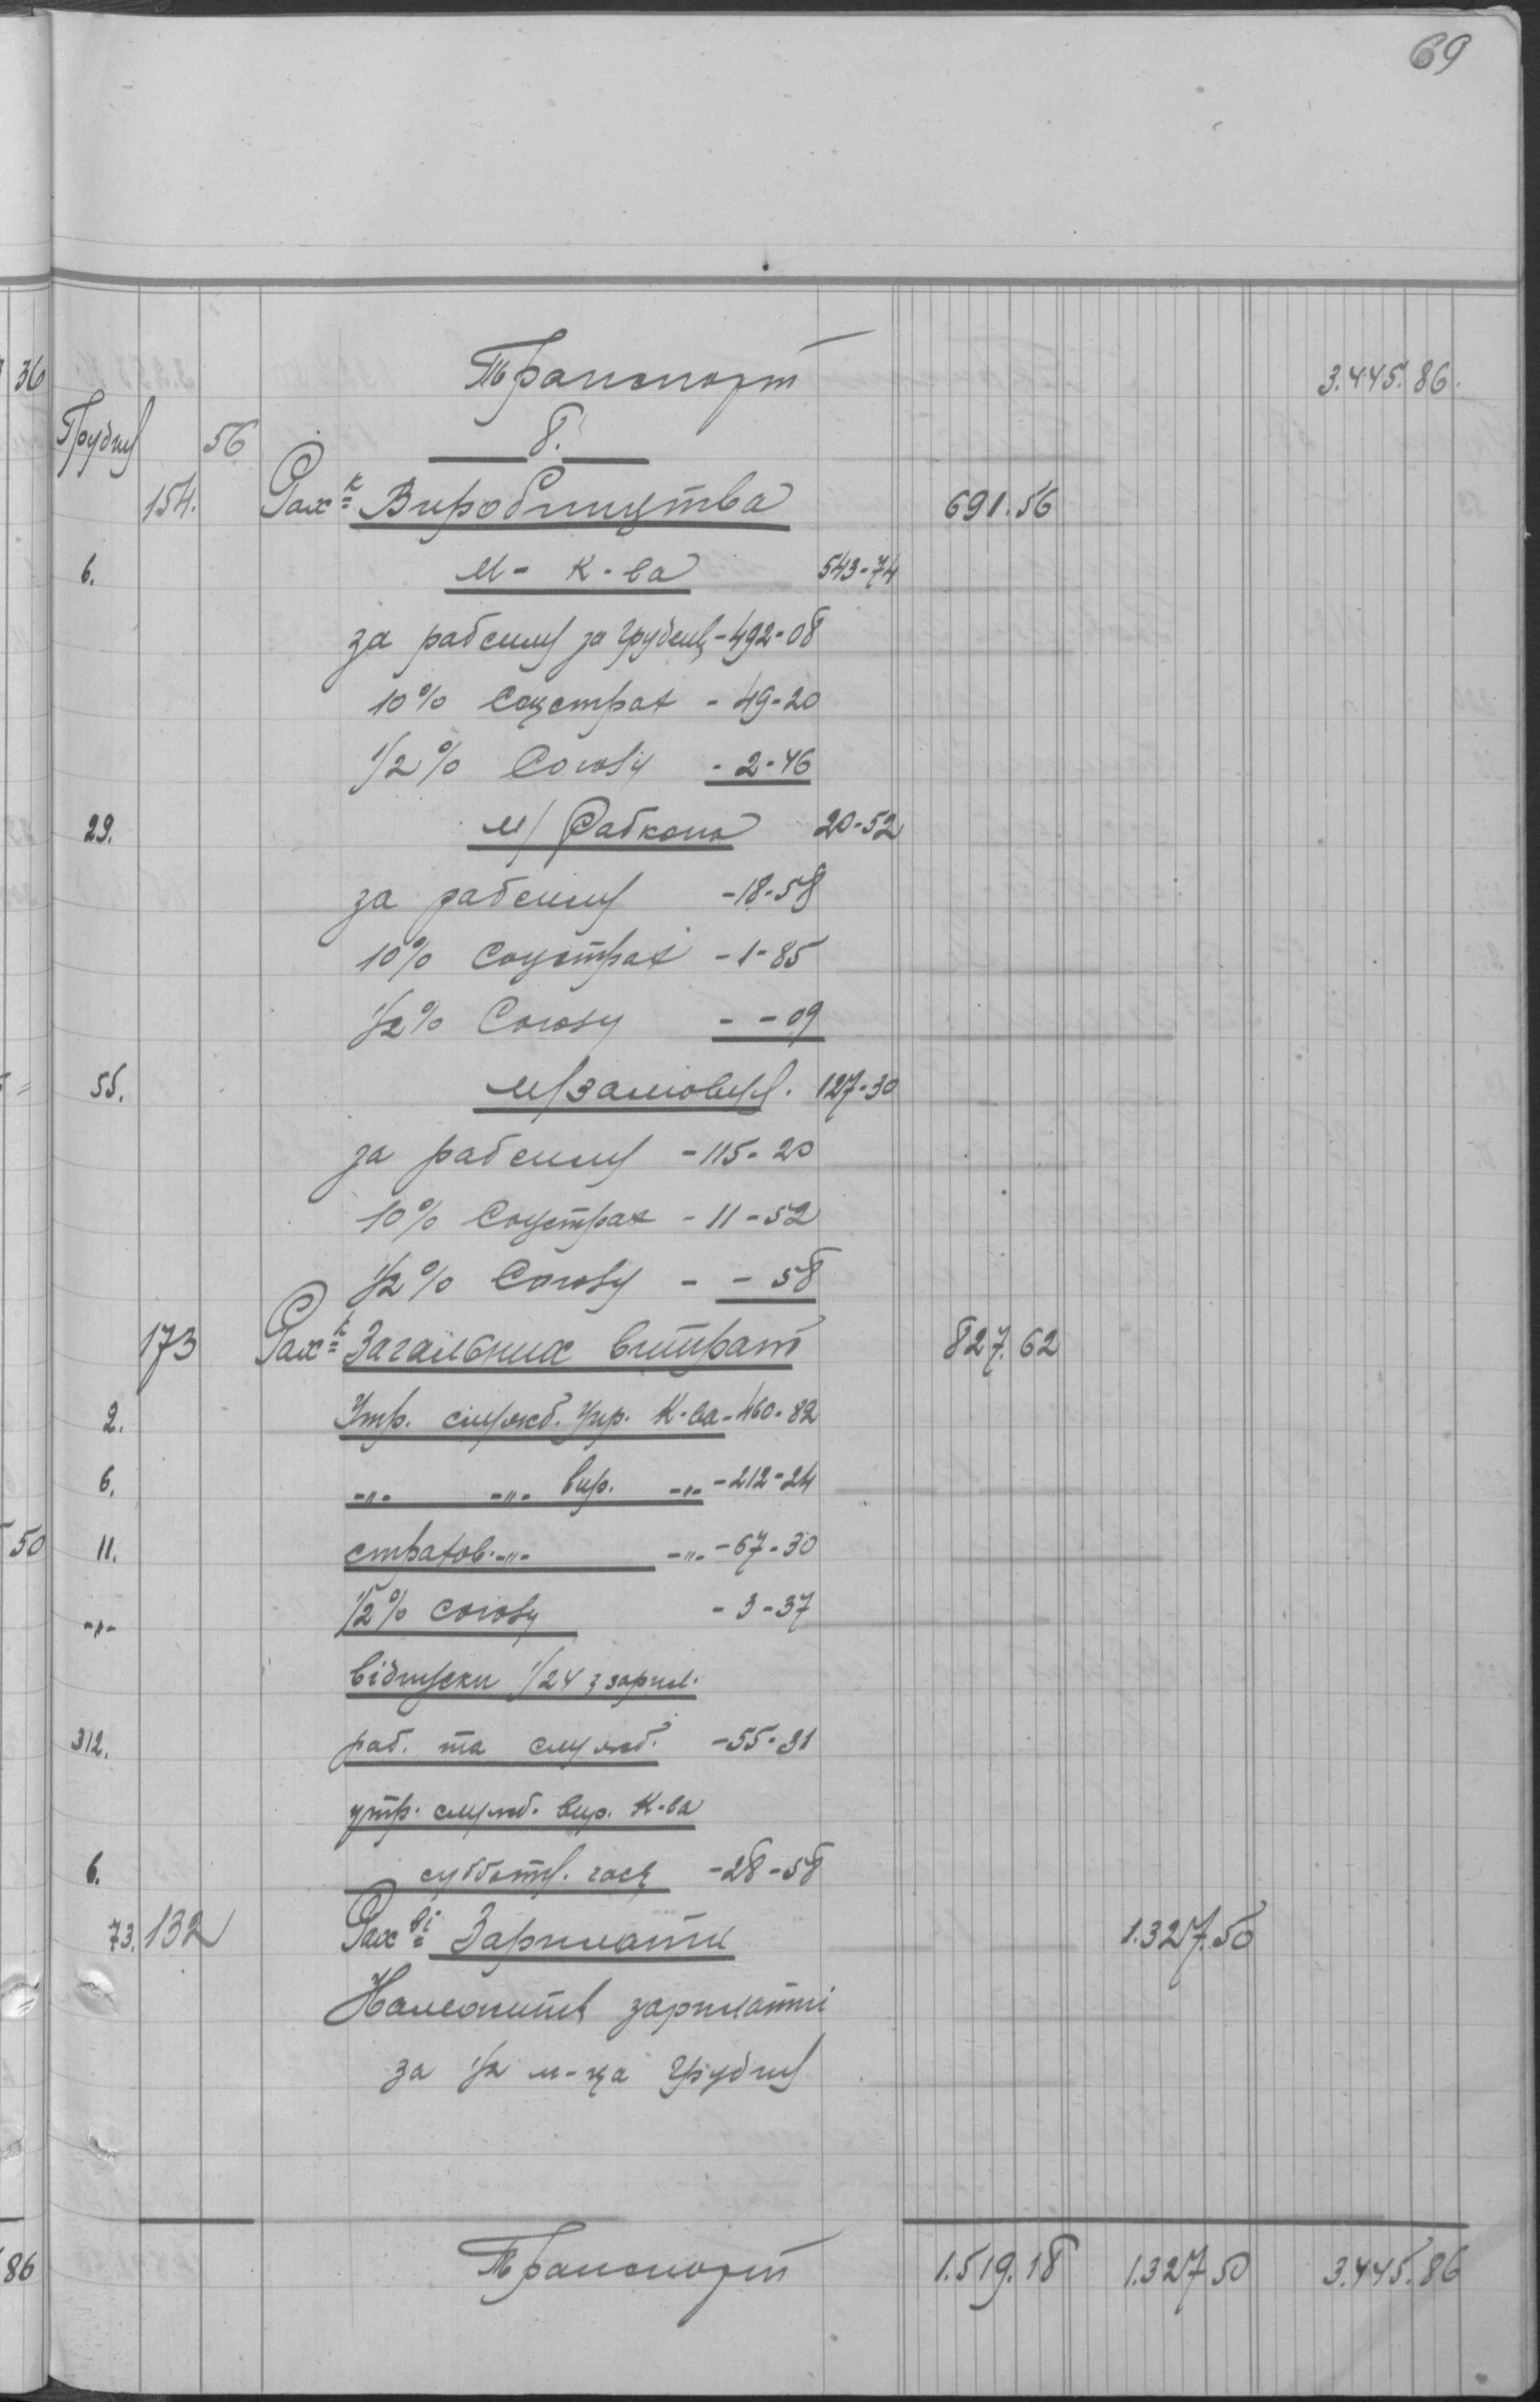 69
36
Транспорт 3.445.86.
Грудня 56 8.
154. Рах-к Виробництва 691.56
6. М - К-ва 543-74
за рабсилу за грудень - 492-08
10% Соцстрах - 49-20
1/2% Союзу - 2-46
29. М/ Рабкопа 20-52
за рабсилу - 18-58
10% Соцстрах - 1-85
1/2% Союзу - - 09
55. М/замовця. 127-30
за рабсилу - 115-20
10% Соцстрах - 11-52
1/2% Союзу - - 58
173 Рах-к Загальних витрат 827.62
2. Утр. служб. упр. К-ва - 460-82
6. -„- -„- вир. -„- - 212-24
50
11. страхов. -„- -„- - 67-30
-„- 1/2% союзу - 3-37
відпуски 1/24 з зарпл.
312. раб. та служб. - 55-31
утр. служб. вир. К-ва
6. субботн. часу - 28-58
73. 132 Рах-ві Зарплати 1.327.50
Належить зарплатні
за 1/2 м-ця грудня
86
Транспорт 1.519.18 1.327 50 3.445.86